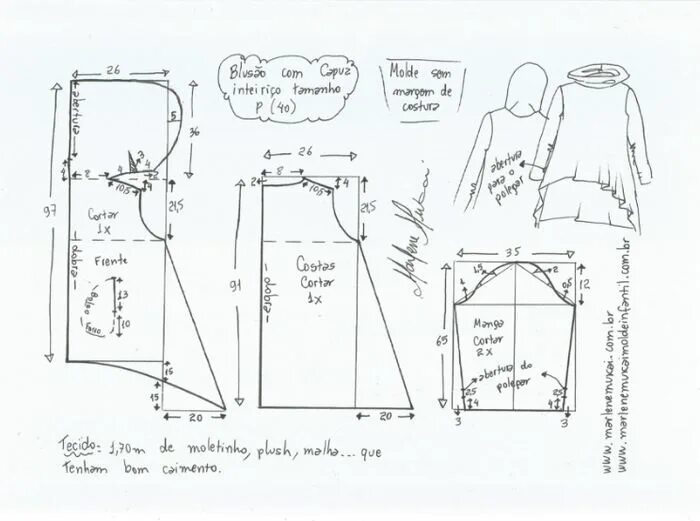 Blusão com Capuz
inteiriço tamanho
P (40)
Molde sem
margem de
costura
26
abertura
5
36
3
4
4
2
4
8
10,5
4
97
21,5
Cortar
1x
dobra
Frente
13
Bolso
Faca
10
15
15
20
26
8
2
4
10,5
21,5
91
Costas
Cortar
1x
dobra
20
Marlene Mukai.
abertura
para o
polegar
35
1,5
2
4
0,5
12
65
Manga
Cortar
2x
abertura do
polegar
2,5
2,5
4
4
3
3
www.marlenemukai.com.br
www.marlenemukaimoldeinfantil.com.br
Tecido: 1,70m de moletinho, plush, malha... que
tenham bom caimento.